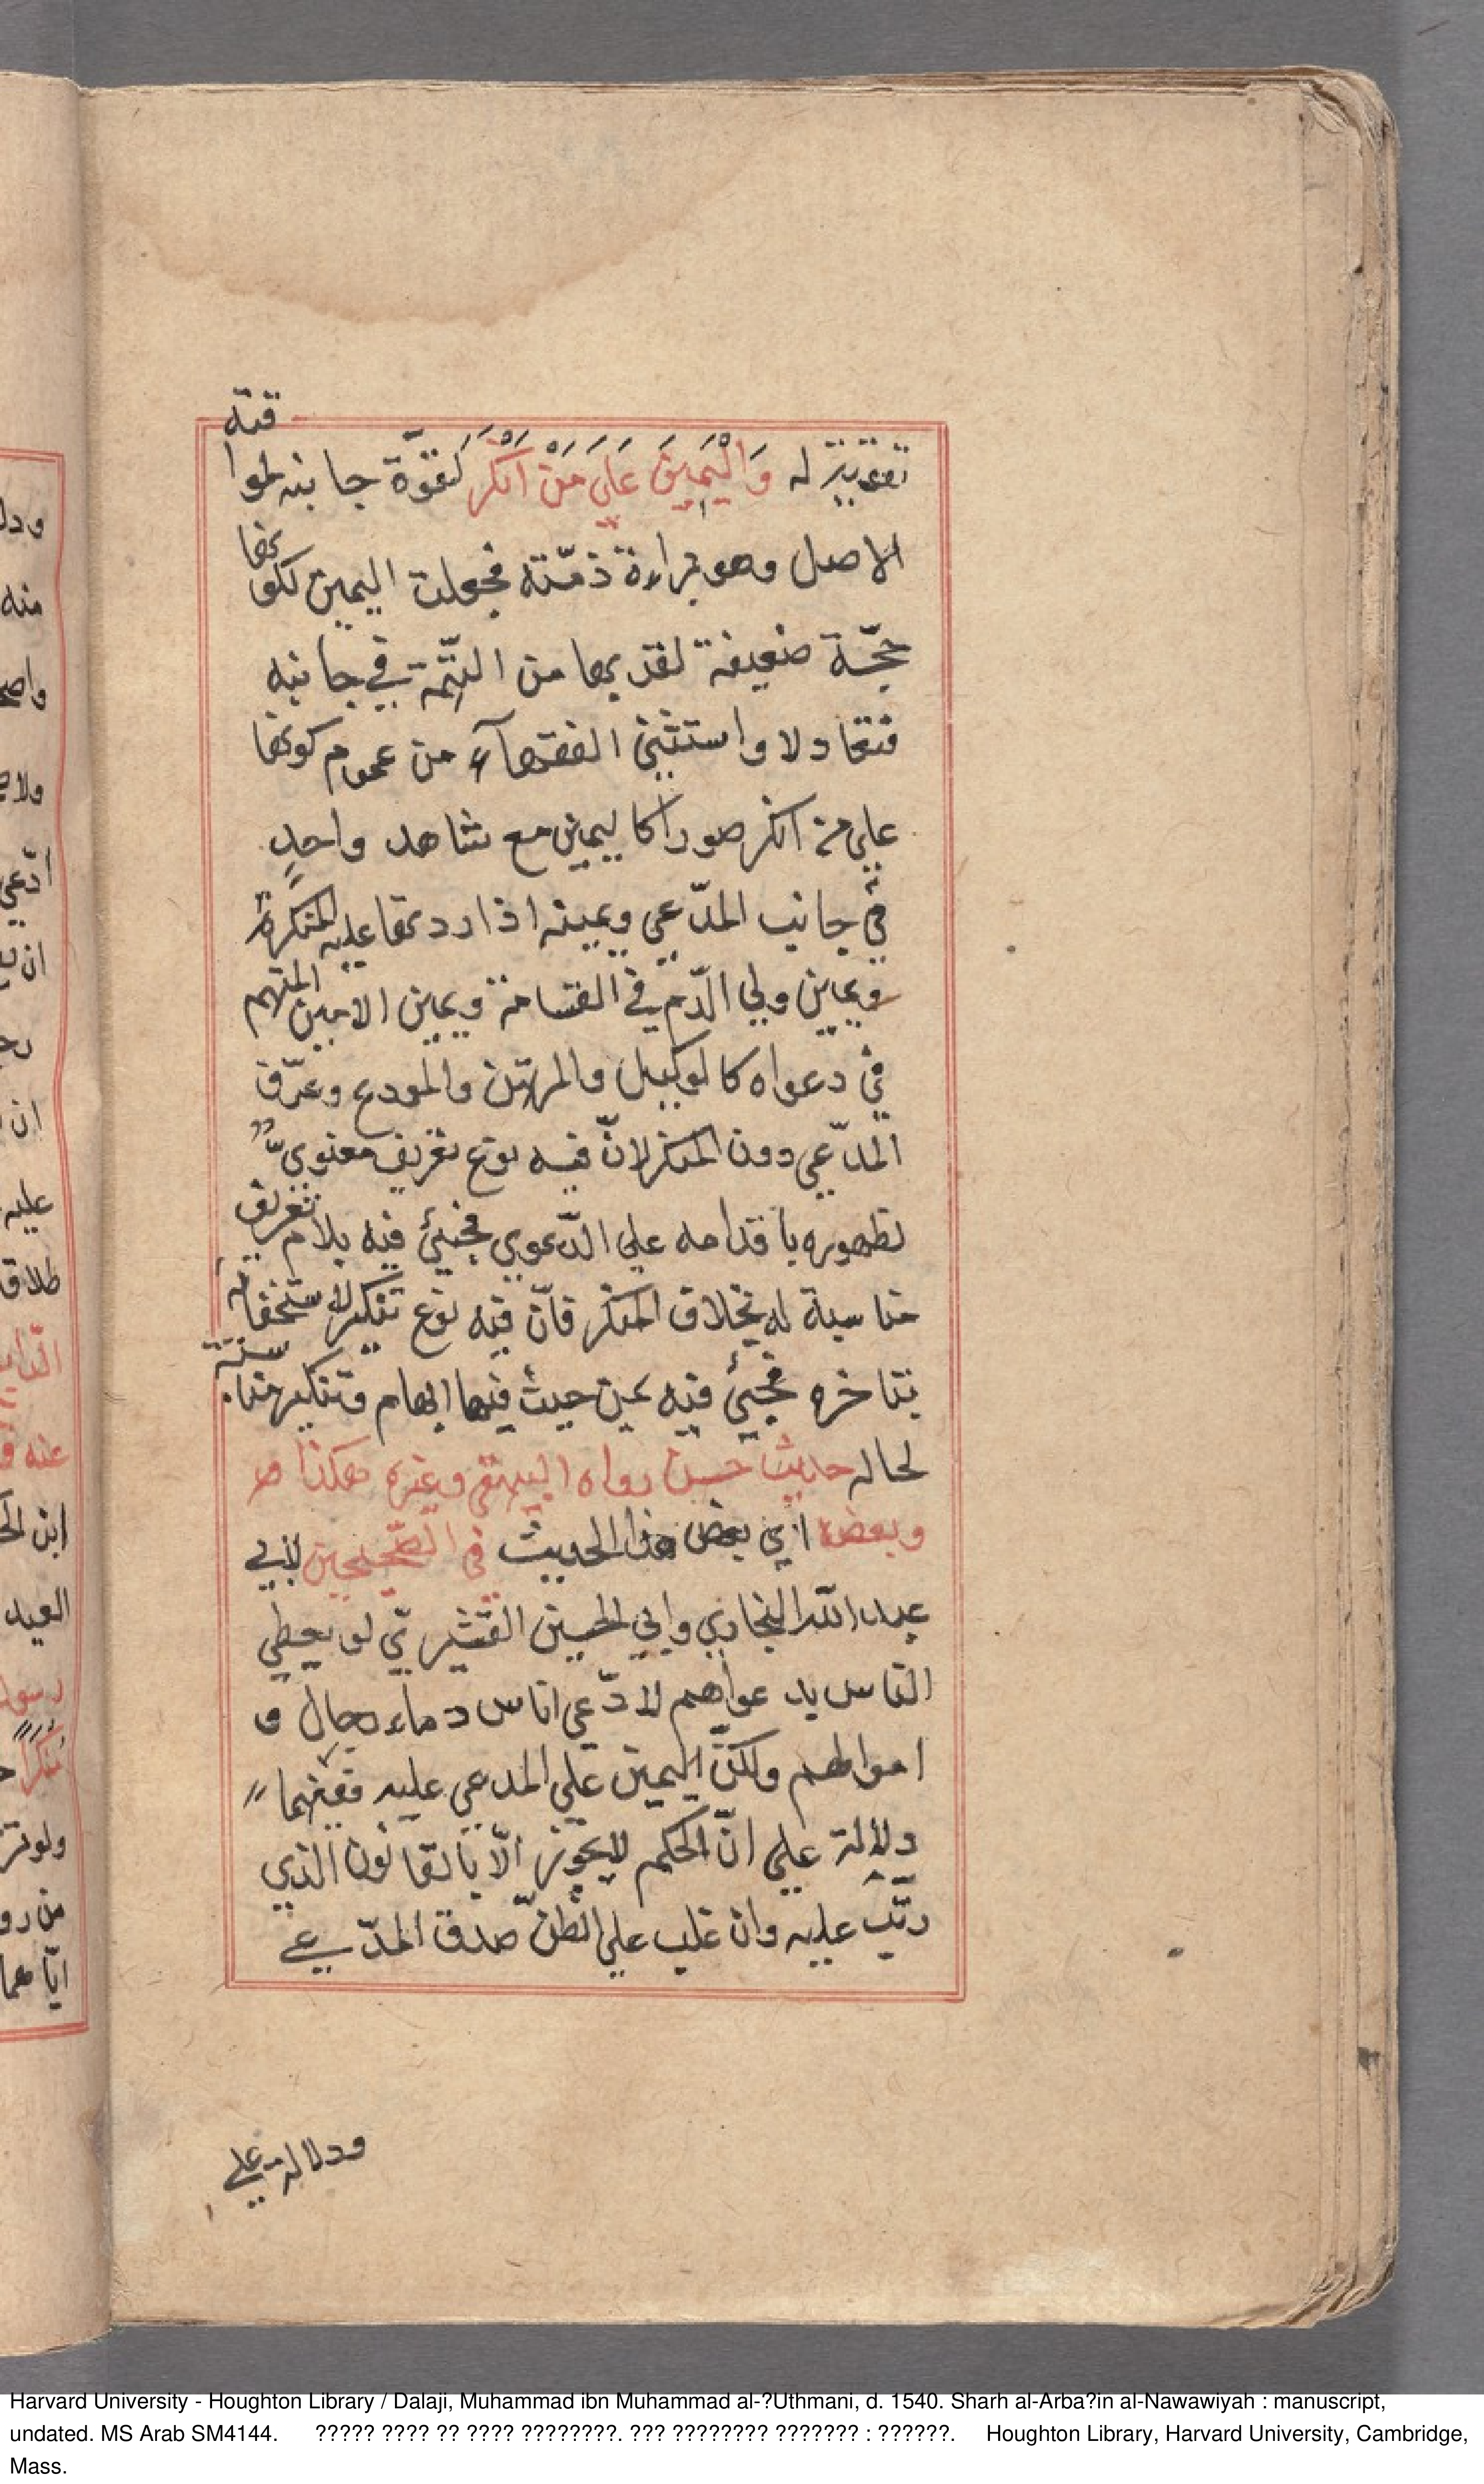 تقوية له وَالْيَمِينَ عَلَى مَنْ اَنْكَرَ لقوّة جانبه لموافقته
الاصل وهو براءة ذمّته فجعلت اليمين لكونها
حجّة ضعيفة لقد بها من التّهمة في جانبه
فتعادلا واستثنى الفقهآء من عموم كونها
علي من انكر صورا كاليمين مع شاهد واحدٍ
في جانب المدّعي ويمينه اذا ردتها عليه المنكر
ويمين ولي الدّم في القسامة ويمين الامين المتهم
في دعواه كالوكيل والمرتهن والمودع وعرّف
المدّعي دون المنكر لانّ فيه نوع تعريف معنويّ
لظهوره باقدامه علي الدّعوي فجيئ فيه بلام تعريف
مناسبة له بخلاف المنكر فانّ فيه نوع تنكير لاستخفائه
بتاخره فجيئ فيه بمن حيث فيها ابهام وتنكير مناسبة
لحاله حديث حسن رواه البيهقي وغيره هكذا
وبعضه اي بعض هذا الحديث في الصّحيحين لابي
عبد الله البخاري وابي الحسين القشيريّ لو يعطي
الناس بدعواهم لادّعي اناس دماء رجال و
اموالهم ولكنّ اليمين علي المدعي عليه ففيهما
دلالة علي انّ الحكم لا يجوز الّا بالقانون الذي
رتّب عليه وان غلب علي الظنّ صدق المدّعي
ودلالة علي
Harvard University - Houghton Library / Dalaji, Muhammad ibn Muhammad al-?Uthmani, d. 1540. Sharh al-Arba?in al-Nawawiyah : manuscript,
undated. MS Arab SM4144. ????? ???? ?? ???? ????????. ??? ???????? ??????? : ??????. Houghton Library, Harvard University, Cambridge,
Mass.